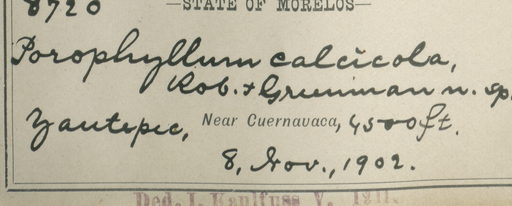 8720 —STATE OF MORELOS—
Porophyllum calcicola,
Rob. & Greenman n. sp.
Yautepec, Near Cuernavaca, 4500 ft.
8, Nov., 1902.
Ded. J. Kaulfuss V. 1911.